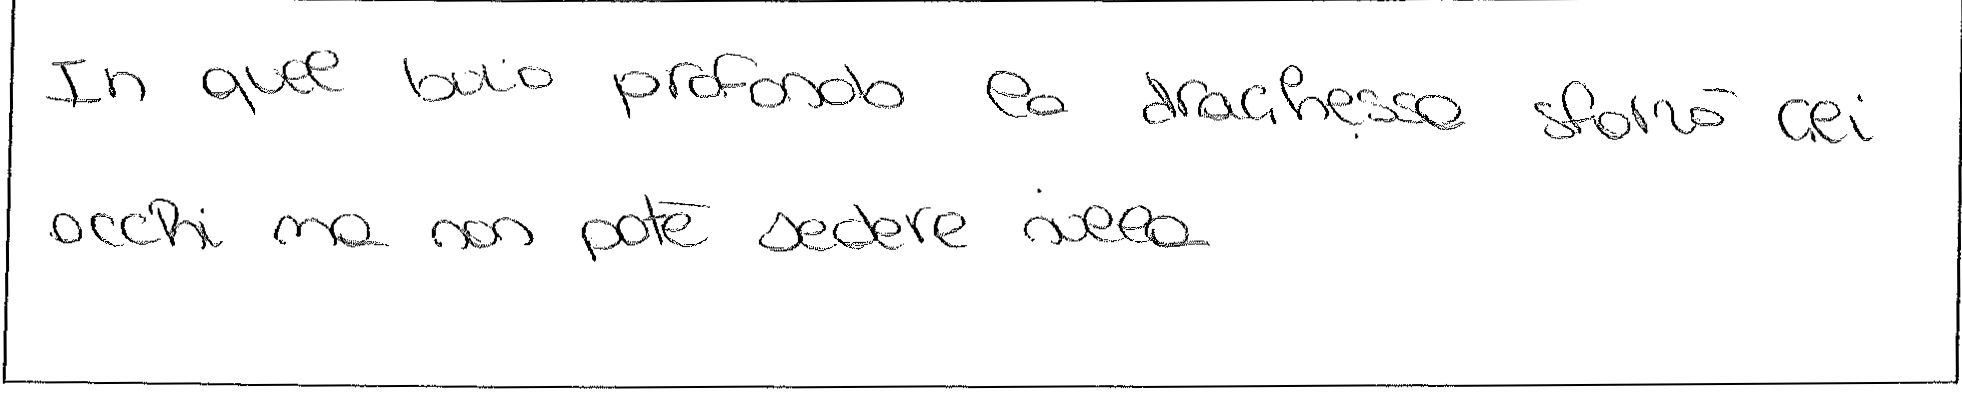 In quel buio profondo la draghessa sforzò gli
occhi ma non potè sedere